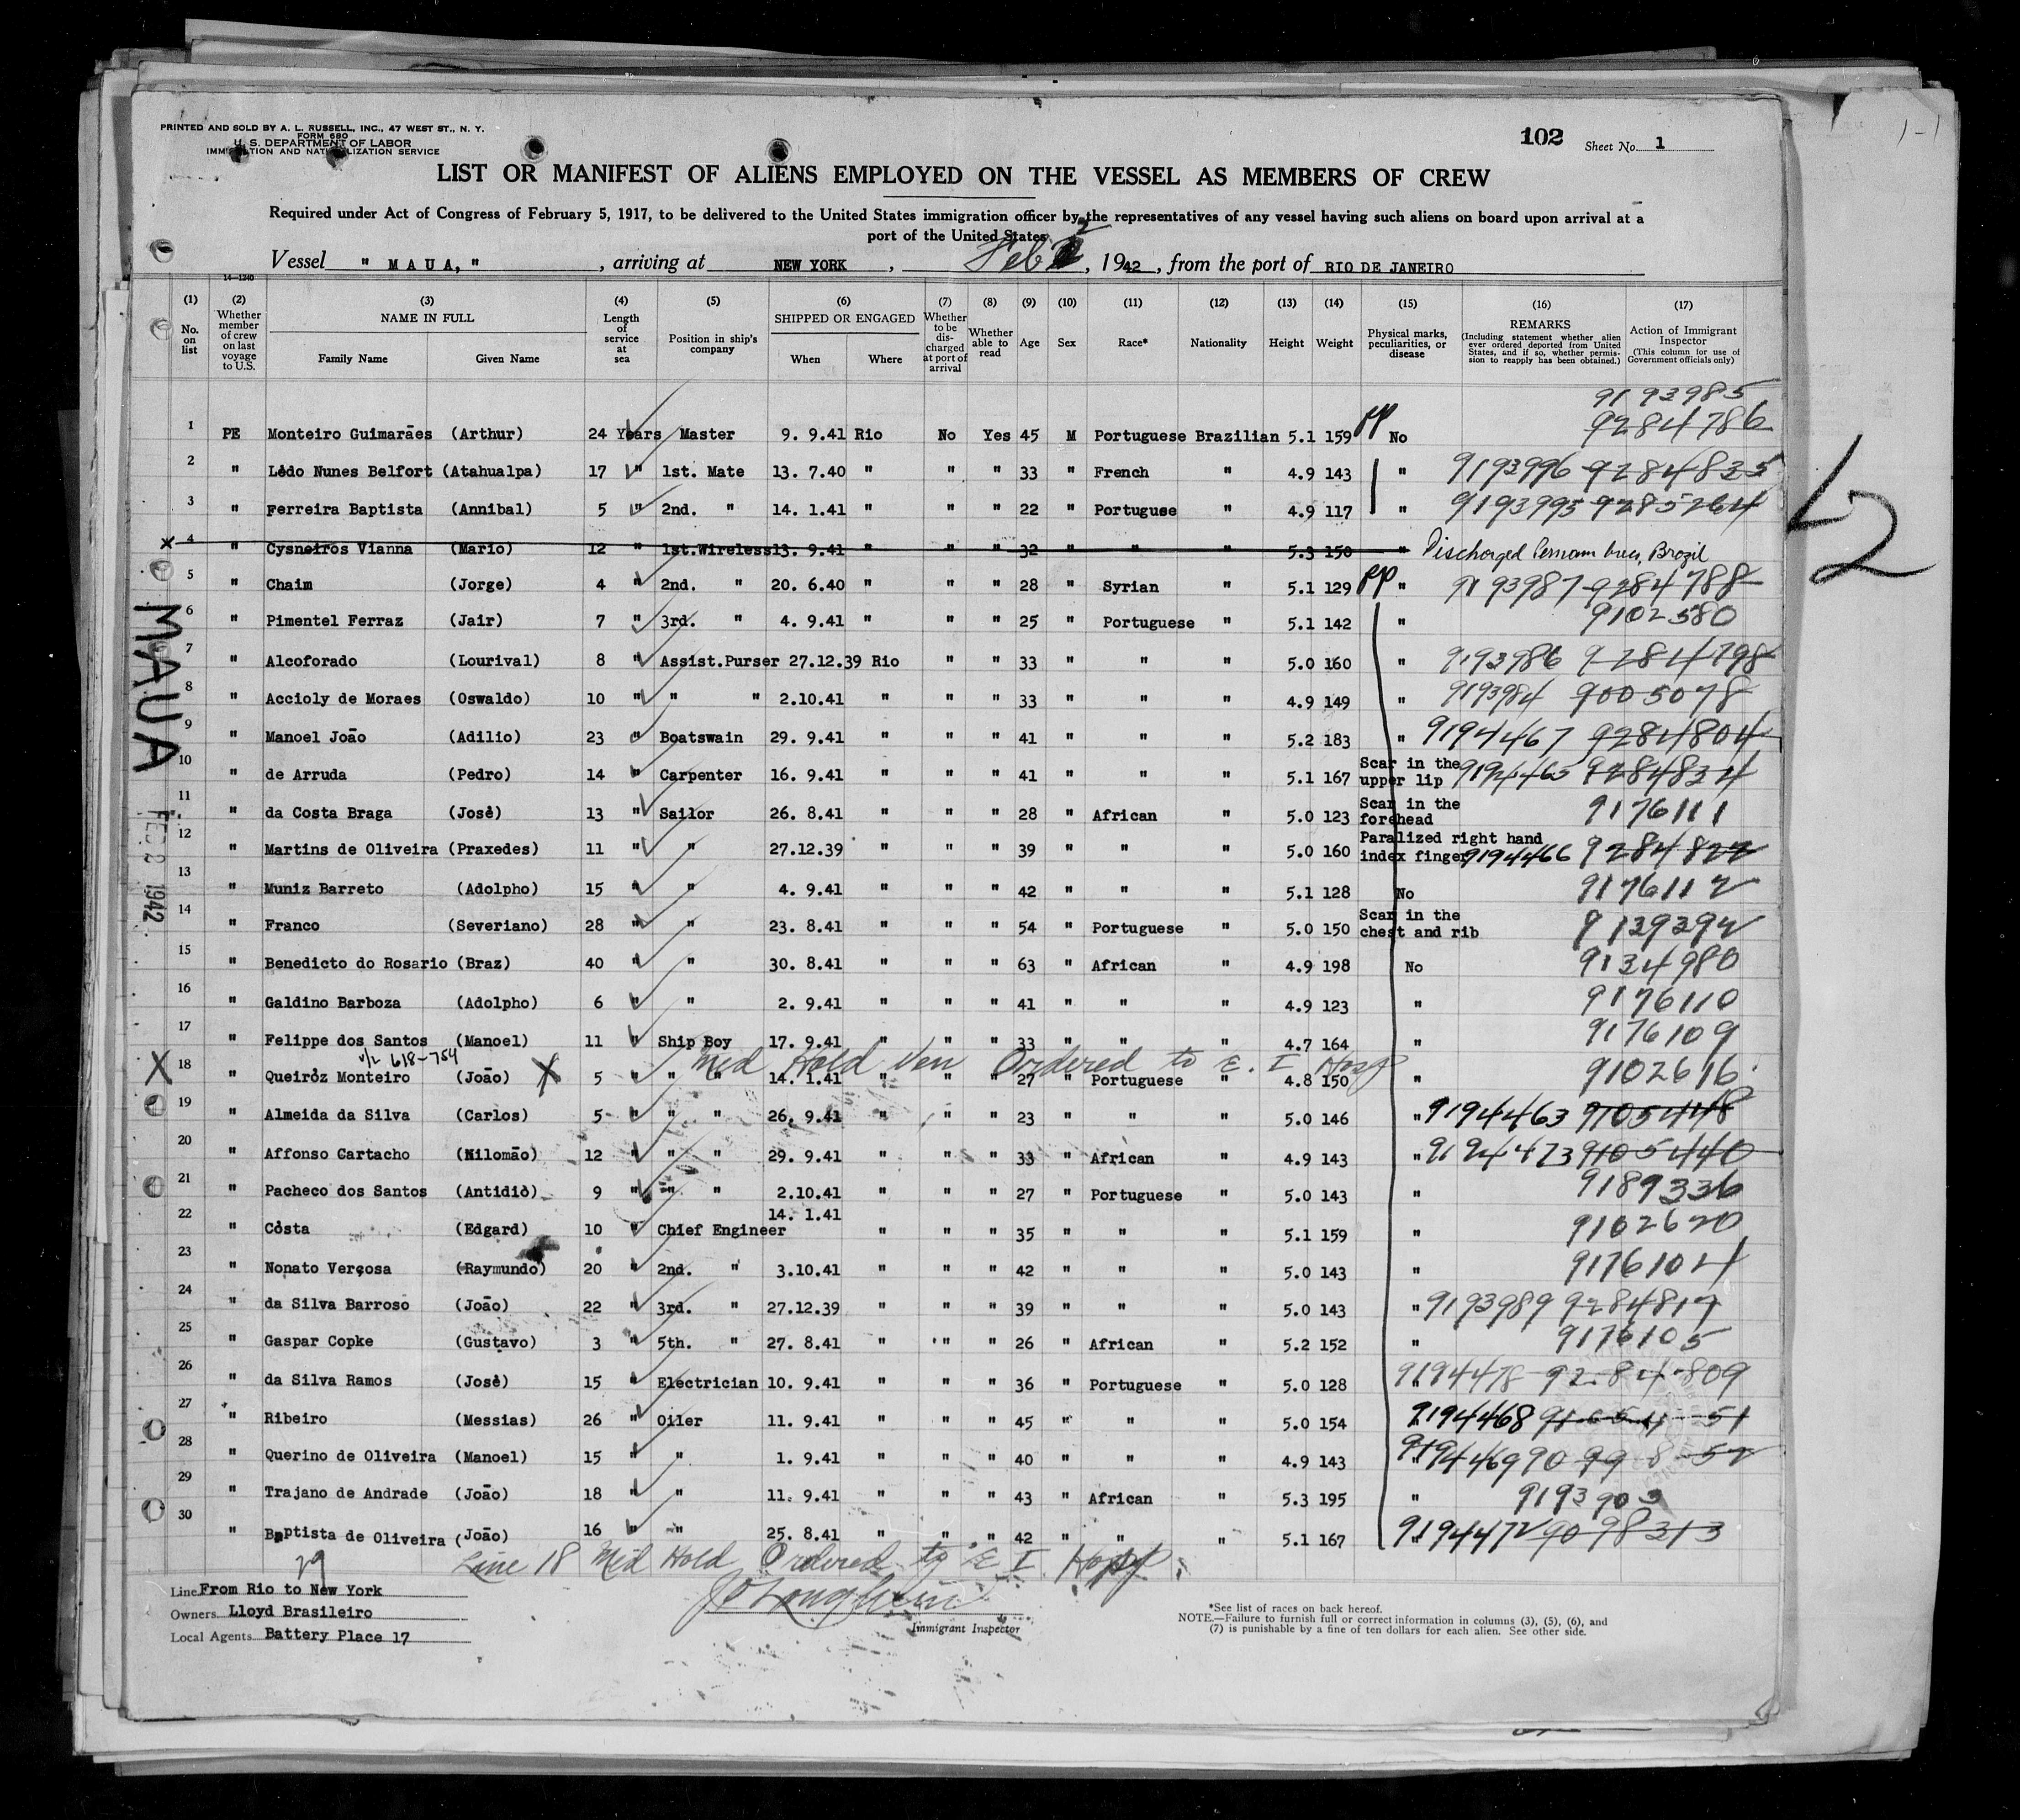 PRINTED AND SOLD BY A. L. RUSSELL, INC., 47 WEST ST., N. Y.
FORM 680
U. S. DEPARTMENT OF LABOR
IMMIGRATION AND NATURALIZATION SERVICE
102 Sheet No. 1
1-1
LIST OR MANIFEST OF ALIENS EMPLOYED ON THE VESSEL AS MEMBERS OF CREW
Required under Act of Congress of February 5, 1917, to be delivered to the United States immigration officer by the representatives of any vessel having such aliens on board upon arrival at a
port of the United States
Vessel " M A U A, " , arriving at NEW YORK , Feb 2 , 1942 , from the port of RIO DE JANEIRO
14-1240
(1) (2) (3) (4) (5) (6) (7) (8) (9) (10) (11) (12) (13) (14) (15) (16) (17)
No. on list Whether member of crew on last voyage to U.S. NAME IN FULL Family Name Given Name Length of service at sea Position in ship's company SHIPPED OR ENGAGED When Where Whether to be discharged at port of arrival Whether able to read Age Sex Race* Nationality Height Weight Physical marks, peculiarities, or disease REMARKS (Including statement whether alien ever ordered deported from United States, and if so, whether permission to reapply has been obtained.) Action of Immigrant Inspector (This column for use of Government officials only)
9193985
1 PE Monteiro Guimarães (Arthur) 24 Years Master 9. 9.41 Rio No Yes 45 M Portuguese Brazilian 5.1 159 PP No 9284786
2 " Lêdo Nunes Belfort (Atahualpa) 17 " 1st. Mate 13. 7.40 " " " 33 " French " 4.9 143 " 9193996 9284835
3 " Ferreira Baptista (Annibal) 5 " 2nd. " 14. 1.41 " " " 22 " Portuguse " 4.9 117 " 9193995 9285264
x 4 " Cysneiros Vianna (Mario) 12 " 1st.Wireless 13. 9.41 " " " 32 " " " 5.3 150 " Discharged Pernambuco, Brazil
5 " Chaim (Jorge) 4 " 2nd. " 20. 6.40 " " " 28 " Syrian " 5.1 129 PP " 9193987 9284788
6 " Pimentel Ferraz (Jair) 7 " 3rd. " 4. 9.41 " " " 25 " Portuguese " 5.1 142 " 9102580
7 " Alcoforado (Lourival) 8 " Assist.Purser 27.12.39 Rio " " 33 " " " 5.0 160 " 9193986 9284798
8 " Accioly de Moraes (Oswaldo) 10 " " " 2.10.41 " " " 33 " " " 4.9 149 " 9193984 9005078
9 " Manoel João (Adilio) 23 " Boatswain 29. 9.41 " " " 41 " " " 5.2 183 " 9194467 9284804
10 " de Arruda (Pedro) 14 " Carpenter 16. 9.41 " " " 41 " " " 5.1 167 Scar in the upper lip 9194465 9284834
11 " da Costa Braga (José) 13 " Sailor 26. 8.41 " " " 28 " African " 5.0 123 Scar in the forehead 9176111
12 " Martins de Oliveira (Praxedes) 11 " " 27.12.39 " " " 39 " " " 5.0 160 Paralized right hand index finger 9194466 9284822
13 " Muniz Barreto (Adolpho) 15 " " 4. 9.41 " " " 42 " " " 5.1 128 No 9176112
14 " Franco (Severiano) 28 " " 23. 8.41 " " " 54 " Portuguese " 5.0 150 Scar in the chest and rib 9139392
15 " Benedicto do Rosario (Braz) 40 " " 30. 8.41 " " " 63 " African " 4.9 198 No 9134980
16 " Galdino Barboza (Adolpho) 6 " " 2. 9.41 " " " 41 " " " 4.9 123 " 9176110
17 " Felippe dos Santos (Manoel) 11 " Ship Boy 17. 9.41 " " " 33 " " " 4.7 164 " 9176109
618-754 Med Hold Ven Ordered to E. I Hosp
X 18 " Queiróz Monteiro (João) X 5 " " " 14. 1.41 " " " 27 " Portuguese " 4.8 150 " 9102616
19 " Almeida da Silva (Carlos) 5 " " " 26. 9.41 " " " 23 " " " 5.0 146 " 9194463 9105448
20 " Affonso Cartacho (Nilomão) 12 " " " 29. 9.41 " " " 33 " African " 4.9 143 " 9194473 9105440
21 " Pacheco dos Santos (Antidiò) 9 " " " 2.10.41 " " " 27 " Portuguese " 5.0 143 " 9189336
22 " Còsta (Edgard) 10 " Chief Engineer 14. 1.41 " " " 35 " " " 5.1 159 " 9102620
23 " Nonato Verçosa (Raymundo) 20 " 2nd. " 3.10.41 " " " 42 " " " 5.0 143 " 9176104
24 " da Silva Barroso (João) 22 " 3rd. " 27.12.39 " " " 39 " " " 5.0 143 " 9193989 9284817
25 " Gaspar Copke (Gustavo) 3 " 5th. " 27. 8.41 " " " 26 " African " 5.2 152 " 9176105
26 " da Silva Ramos (José) 15 " Electrician 10. 9.41 " " " 36 " Portuguese " 5.0 128 " 9194478 9284809
27 " Ribeiro (Messias) 26 " Oiler 11. 9.41 " " " 45 " " " 5.0 154 " 9194468
28 " Querino de Oliveira (Manoel) 15 " " 1. 9.41 " " " 40 " " " 4.9 143 " 9194469
29 " Trajano de Andrade (João) 18 " " 11. 9.41 " " " 43 " African " 5.3 195 " 9193903
30 " Baptista de Oliveira (João) 16 " " 25. 8.41 " " " 42 " " " 5.1 167 " 9194472 9098313
29 Line 18 Med Hold Ordered to E I Hosp
MAUA
FEB 2 1942
L2
Line From Rio to New York
Owners Lloyd Brasileiro
Local Agents Battery Place 17
Immigrant Inspector
*See list of races on back hereof.
NOTE.—Failure to furnish full or correct information in columns (3), (5), (6), and
(7) is punishable by a fine of ten dollars for each alien. See other side.